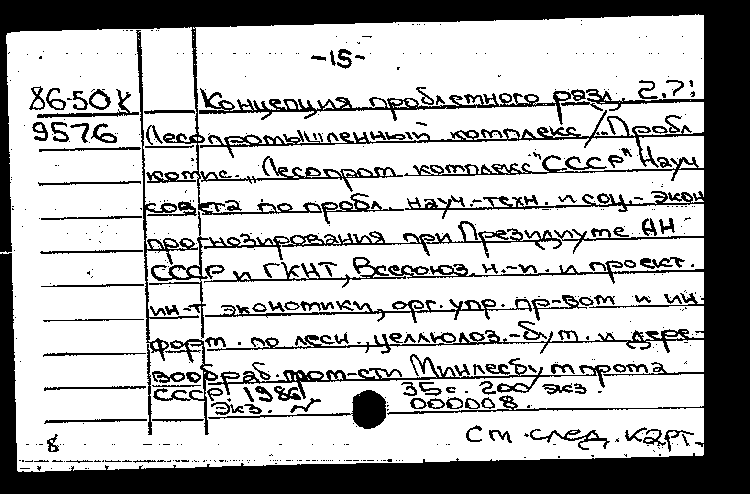 -15-
86-50К Концепция проблемного разд. 2.7:
9576 Лесопромышленный комплекс / Пробл
комис. "Лесопром. комплекс "СССР" Науч
совета по пробл. науч.-техн. и соц.-экон
прогнозирования при Президиуме АН
СССР и ГКНТ, Всесоюз. н.-и. и проект.
ин-т экономики, орг. упр. пр-вом и ин-
форм. по лесн., целлюлоз.-бум. и дере-
вообраб. пром-сти Минлесбумпрома
СССР. 1986 35 с. 200 экз.
Экз. № 000008.
См. след. карт.
8